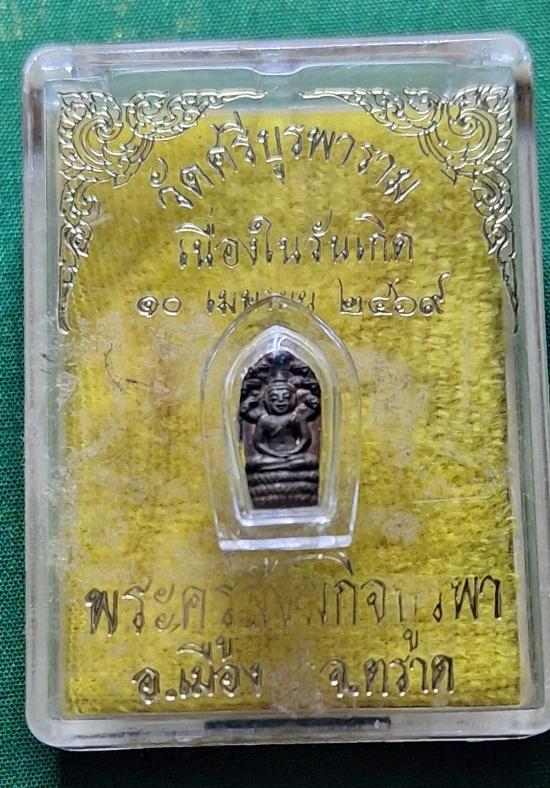 วัดศรีบูรพาราม
เนื่องในวันเกิด
๑๐ เมษายน ๒๔๖๙
อ.เมือง จ.ตราด